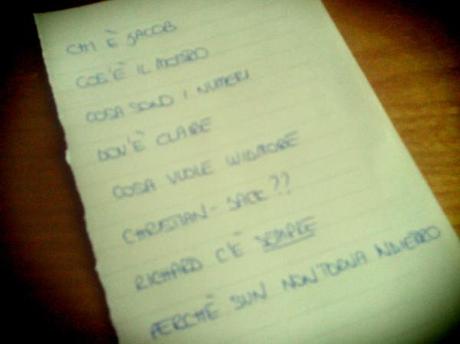 CHI È JACOB
COS'È IL MOSTRO
COSA SONO I NUMERI
DOV'È CLAIRE
COSA VUOLE WIDMORE
CHRISTIAN - JACK??
RICHARD C'È SEMPRE
PERCHÈ SUN NON TORNA INDIETRO